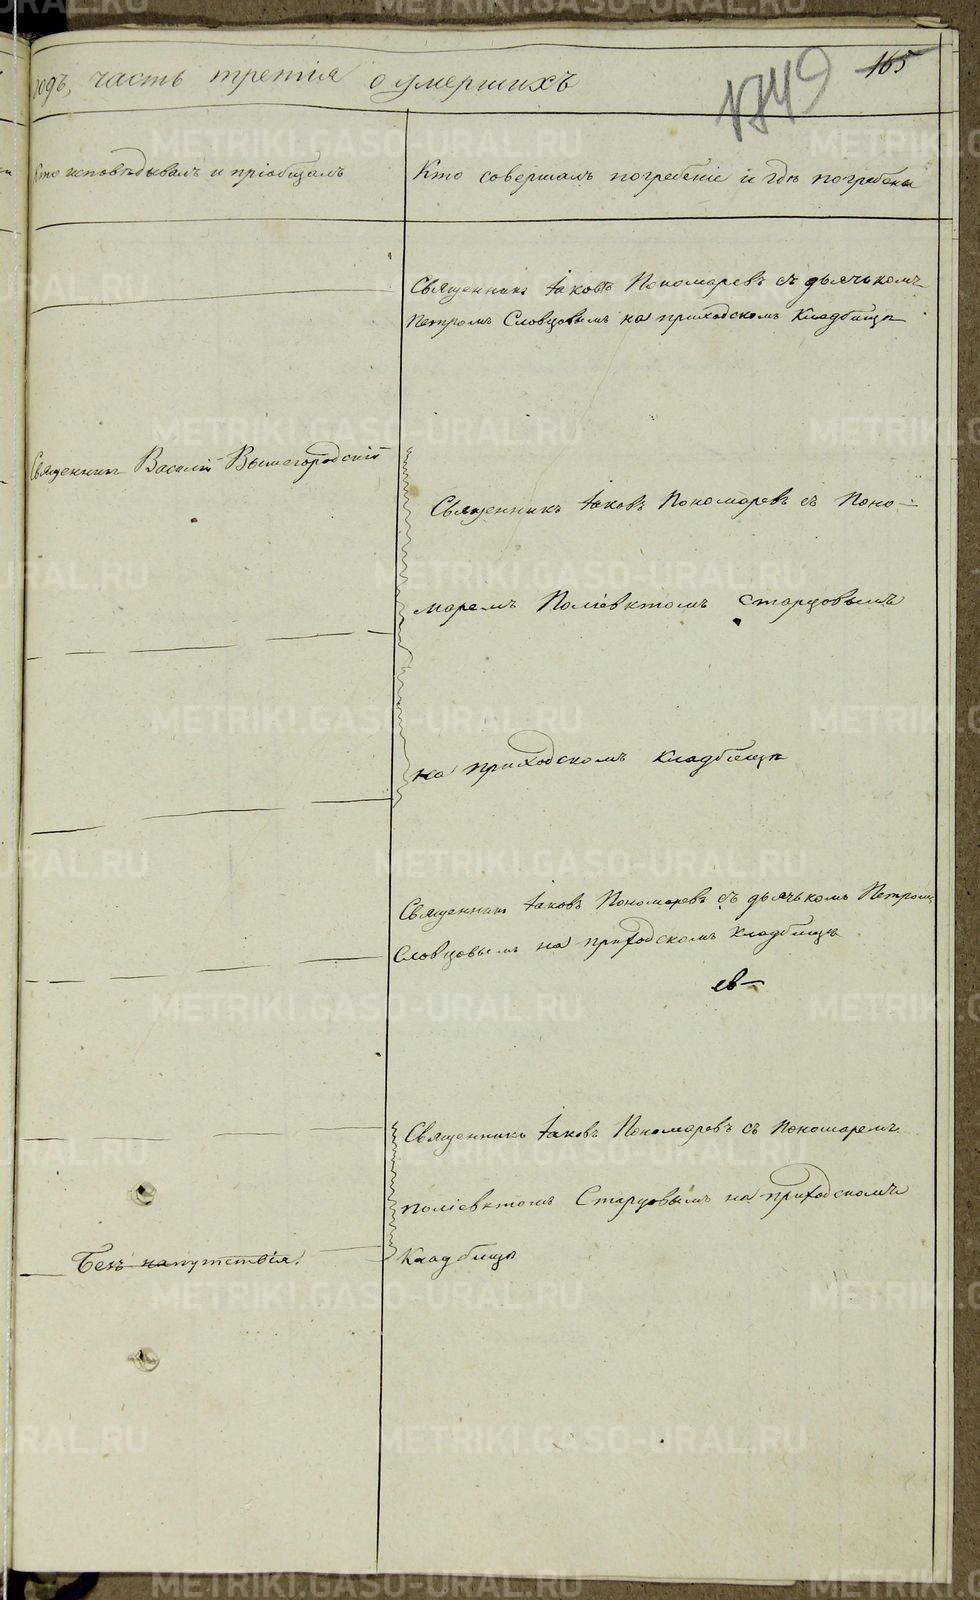 годъ, часть третія о умершихъ
1749
165
Кто исповѣдывалъ и пріобщалъ
Кто совершалъ погребеніе и гдѣ погребены
Священникъ Іаковъ Пономаревъ съ дьячькомъ
Петромъ Словцовымъ на приходскомъ кладбищѣ
Священникъ Василій Вышегородскій
Священникъ Іаковъ Пономаревъ съ Поно-
маремъ Поліевктомъ Старцовымъ
на приходскомъ кладбищѣ
Священникъ Іаковъ Пономаревъ съ дьячькомъ Петромъ
Словцовымъ на приходскомъ кладбищѣ
ев-
Священникъ Іаковъ Пономаревъ съ Пономаремъ
Поліевктомъ Старцовымъ на приходскомъ
Кладбищѣ
Безъ напутствія.
METRIKI.GASO-URAL.RU